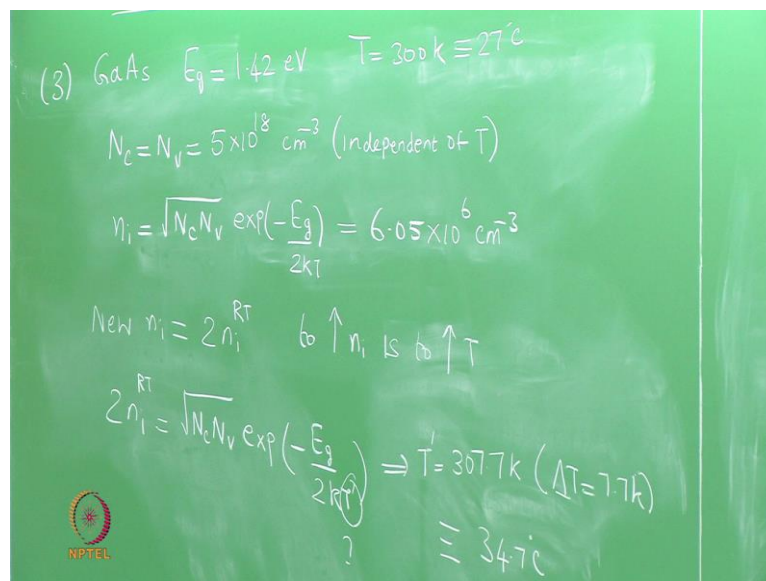 (3) GaAs E_g = 1.42 eV T = 300k ≡ 27°c
N_c = N_v = 5×10^18 cm^-3 (independent of T)
n_i = √(N_c N_v) exp(-E_g/2kT) = 6.05×10^6 cm^-3
New n_i = 2n_i^RT to ↑ n_i is to ↑ T
2n_i^RT = √(N_c N_v) exp(-E_g/2kT') ⇒ T' = 307.7k (ΔT = 7.7k)
? ≡ 34.7°c
NPTEL